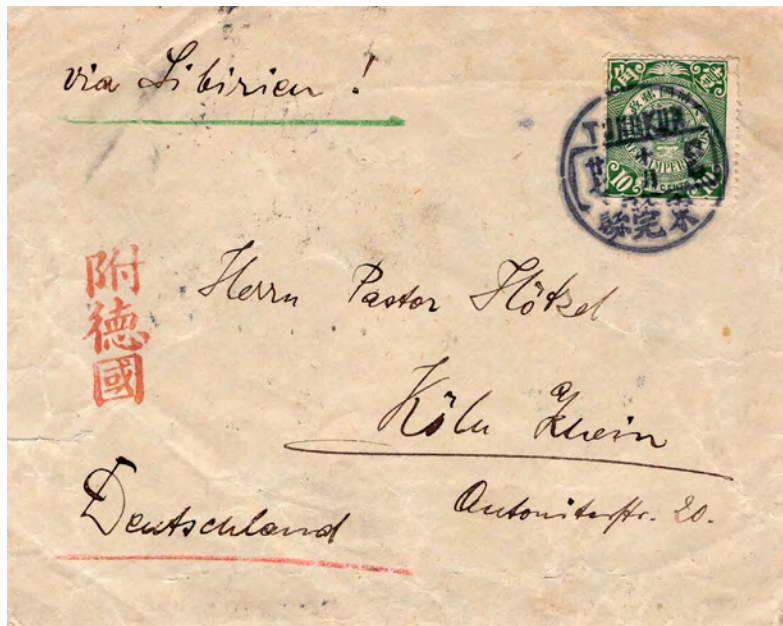 via Sibirien !
壹角
10 10
附德國
Herrn Pastor Hötzel
Köln Rhein
Antoniterstr. 20.
Deutschland